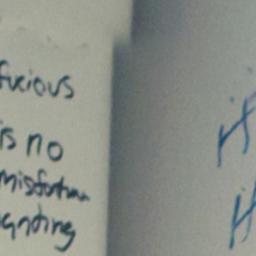 fucious
is no
misfortun
anting
if
if